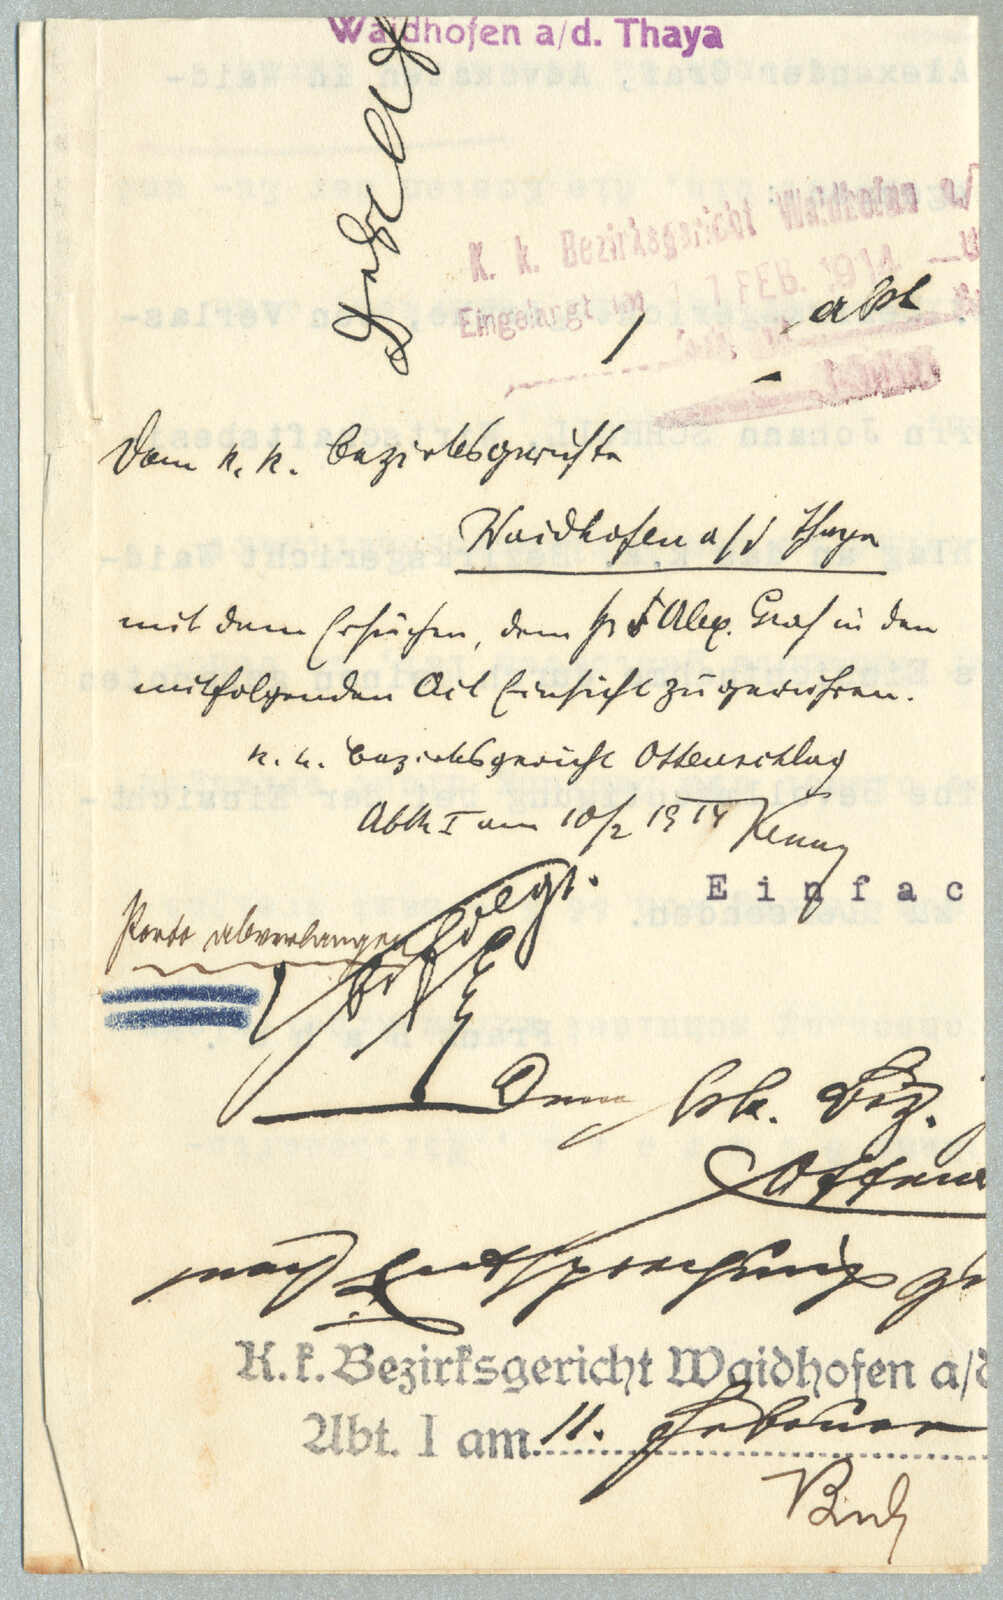 Waidhofen a/d. Thaya
K. k. Bezirksgericht Waidhofen a/
Eingelangt am 11 FEB. 1914
Dem k. k. Bezirksgerichte
Waidhofen a/d Thaya
mit dem Ersuchen, dem Hr Alex. Graf in den
mitfolgenden Act Einsicht zu gewähren.
k. k. Bezirksgericht Ottenschlag
Abth I am 10/2 1914
Einfac
Porto abverlangen
erfolgt.
Dem k. k. Bez.
Ottens
nach Entsprechung
K. k. Bezirksgericht Waidhofen a/d
Abt. I am 11. Februar